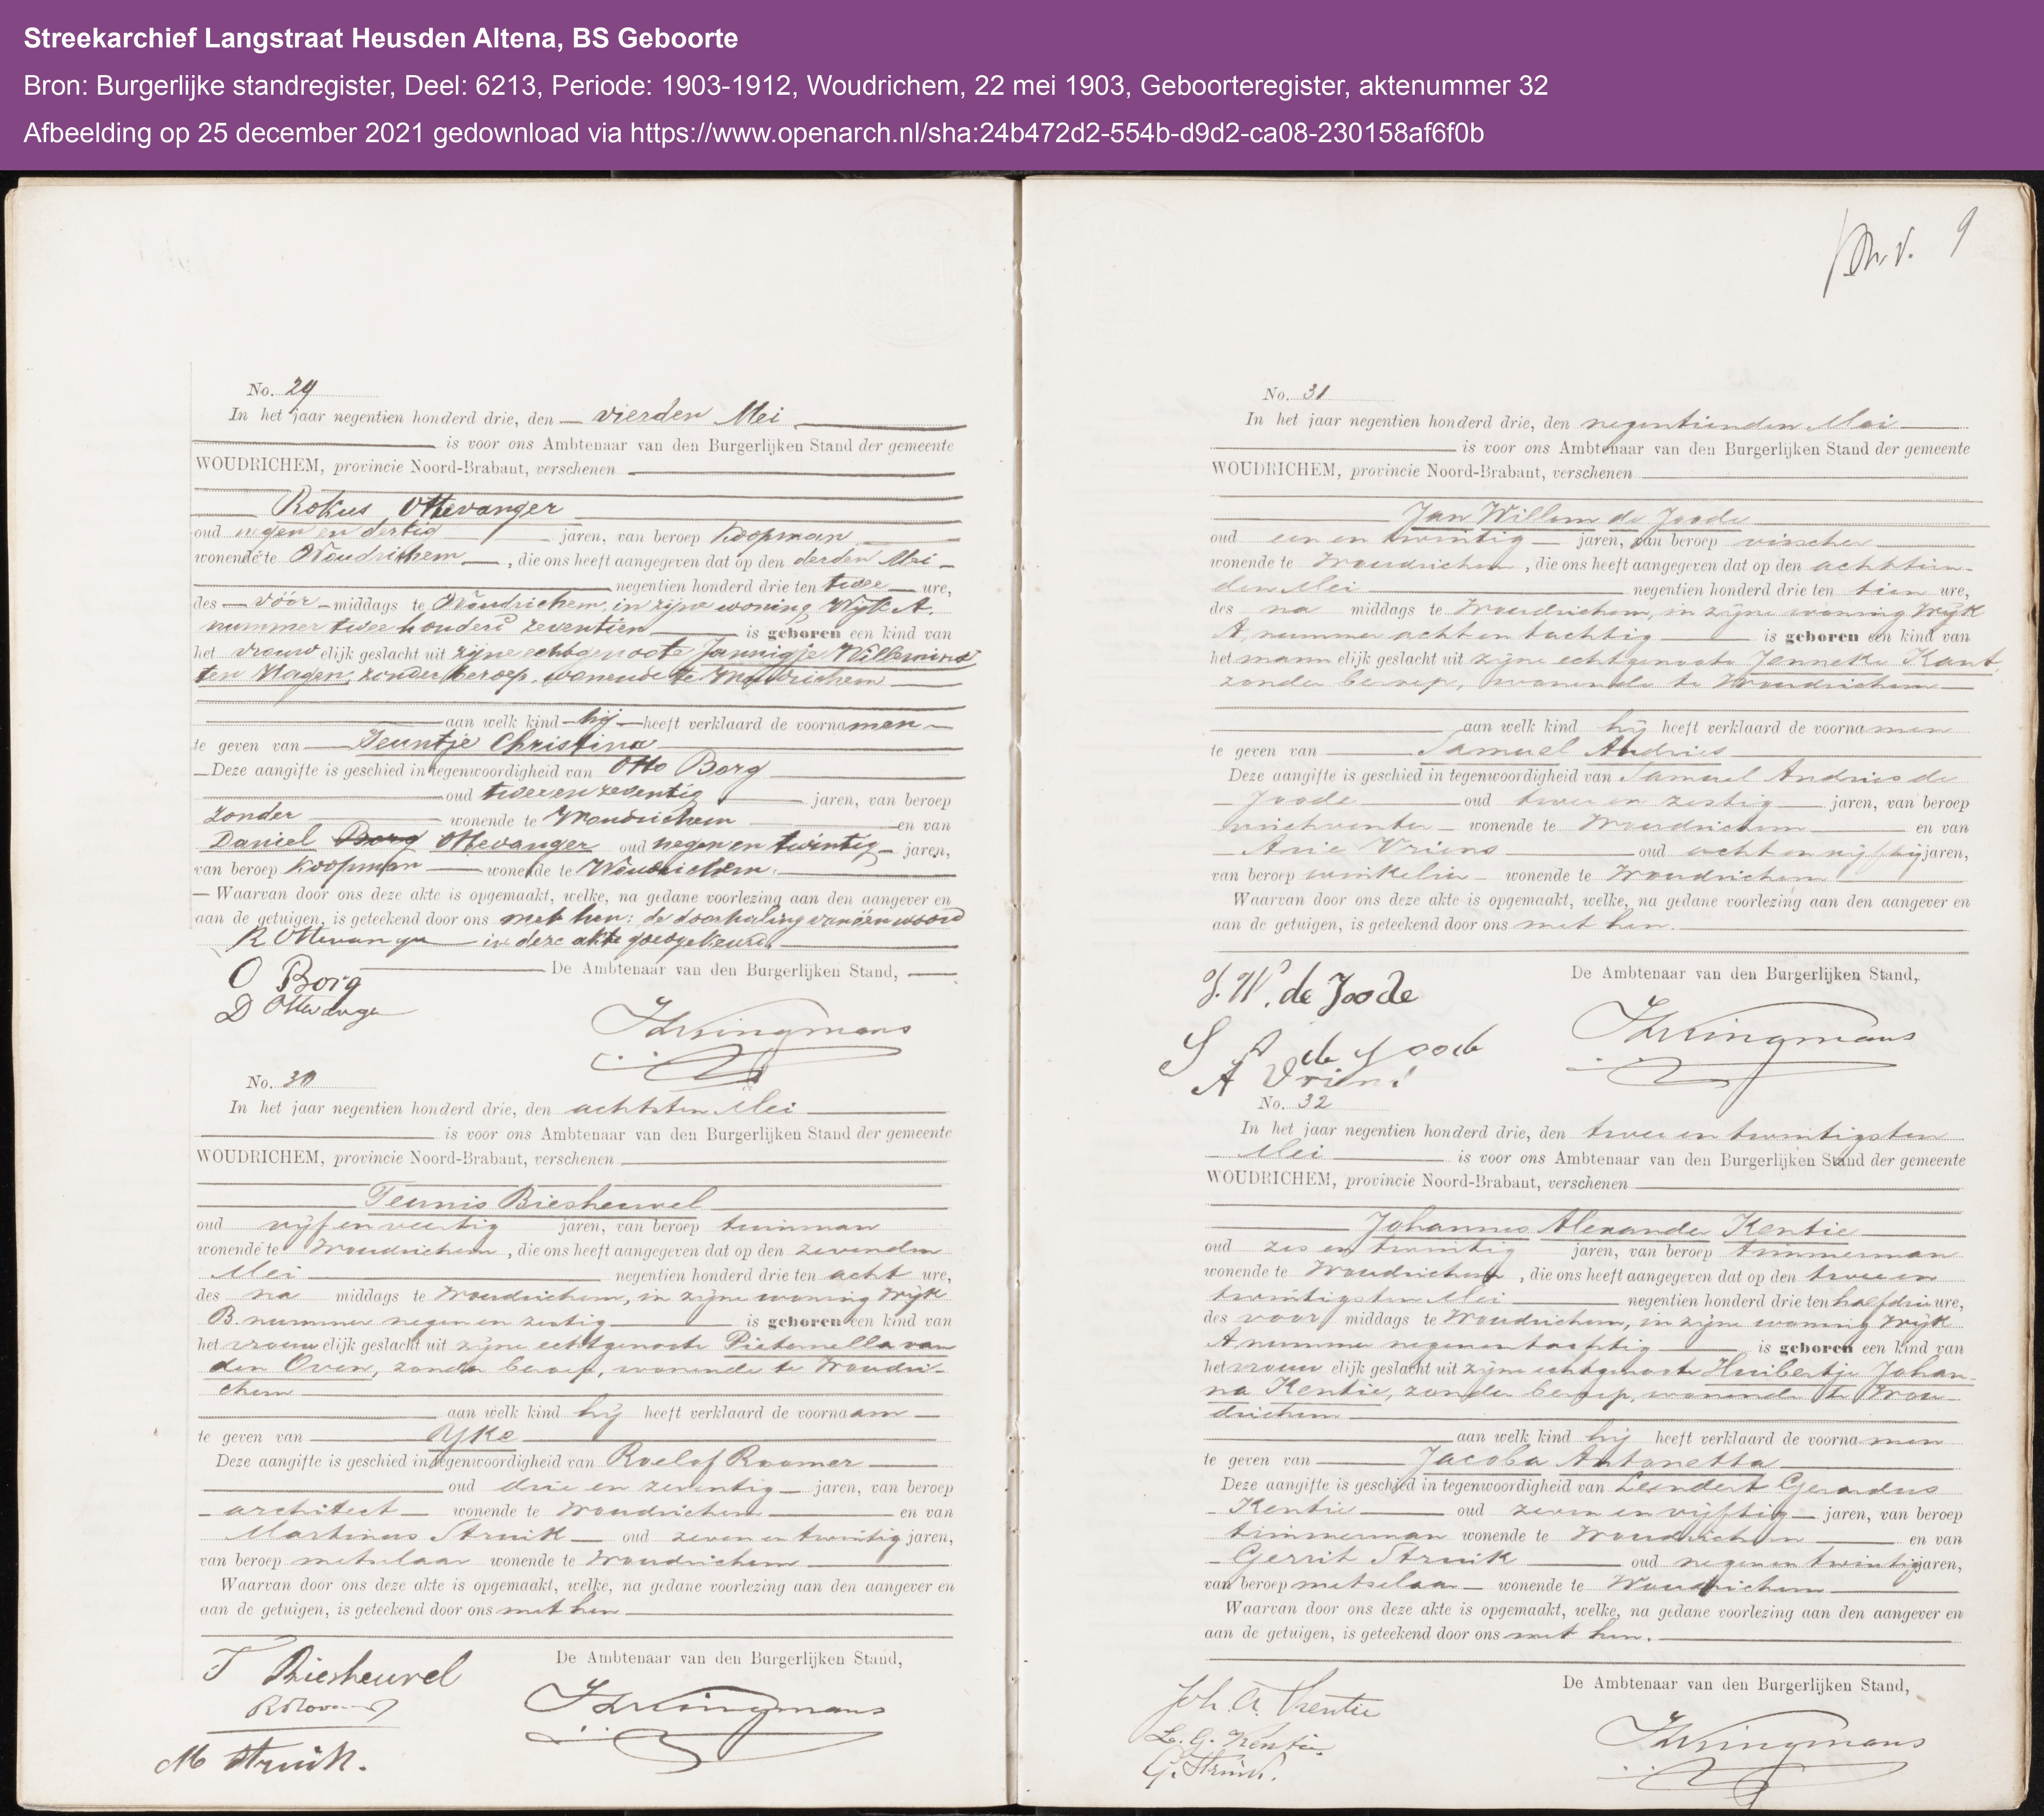 Streekarchief Langstraat Heusden Altena, BS Geboorte
Bron: Burgerlijke standregister, Deel: 6213, Periode: 1903-1912, Woudrichem, 22 mei 1903, Geboorteregister, aktenummer 32
Afbeelding op 25 december 2021 gedownload via https://www.openarch.nl/sha:24b472d2-554b-d9d2-ca08-230158af6f0b
No. 29
In het jaar negentien honderd drie, den vierden Mei
is voor ons Ambtenaar van den Burgerlijken Stand der gemeente
WOUDRICHEM, provincie Noord-Brabant, verschenen
Rokus Ottevanger
oud negen en dertig jaren, van beroep Koopman
wonende te Woudrichem, die ons heeft aangegeven dat op den derden Mei
negentien honderd drie ten twee ure,
des vóór middags te Woudrichem, in zijne woning Wijk A.
nummer twee honderd zeventien is geboren een kind van
het vrouwelijk geslacht uit zijne echtgenoote Jannigje Willemina
ten Hagen, zonder beroep, wonende te Woudrichem
aan welk kind hij heeft verklaard de voornamen
te geven van Teuntje Christina
Deze aangifte is geschied in tegenwoordigheid van Otto Borg
oud twee en zeventig jaren, van beroep
zonder wonende te Woudrichem en van
Daniel Borg Ottevanger oud negen en twintig jaren,
van beroep Koopman wonende te Woudrichem.
Waarvan door ons deze akte is opgemaakt, welke, na gedane voorlezing aan den aangever en
aan de getuigen, is geteekend door ons met hen: de doorhaling van één woord
R Ottevanger in deze akte goedgekeurd.
O Borg De Ambtenaar van den Burgerlijken Stand,
D Ottevanger
No. 30
In het jaar negentien honderd drie, den achtsten Mei
is voor ons Ambtenaar van den Burgerlijken Stand der gemeente
WOUDRICHEM, provincie Noord-Brabant, verschenen
Teunis Biesheuvel
oud vijf en veertig jaren, van beroep tuinman
wonende te Woudrichem, die ons heeft aangegeven dat op den zevenden
Mei negentien honderd drie ten acht ure,
des na middags te Woudrichem, in zijne woning Wijk
B nummer negen en zestig is geboren een kind van
het vrouwelijk geslacht uit zijne echtgenoote Pieternella van
den Oven, zonder beroep, wonende te Woudri-
chem
aan welk kind hij heeft verklaard de voornaam
te geven van Yke
Deze aangifte is geschied in tegenwoordigheid van Roelof Roomer
oud drie en zeventig jaren, van beroep
architect wonende te Woudrichem en van
Martinus Struik oud zeven en twintig jaren,
van beroep metselaar wonende te Woudrichem
Waarvan door ons deze akte is opgemaakt, welke, na gedane voorlezing aan den aangever en
aan de getuigen, is geteekend door ons met hen
De Ambtenaar van den Burgerlijken Stand,
T Biesheuvel
M Struik.
9
No. 31
In het jaar negentien honderd drie, den negentienden Mei
is voor ons Ambtenaar van den Burgerlijken Stand der gemeente
WOUDRICHEM, provincie Noord-Brabant, verschenen
Jan Willem de Joode
oud een en twintig jaren, van beroep visscher
wonende te Woudrichem, die ons heeft aangegeven dat op den achttien-
den Mei negentien honderd drie ten tien ure,
des na middags te Woudrichem, in zijne woning Wijk
A, nummer acht en tachtig is geboren een kind van
het mannelijk geslacht uit zijne echtgenoote Janneke Kant,
zonder beroep, wonende te Woudrichem
aan welk kind hij heeft verklaard de voornamen
te geven van Samuel Andries
Deze aangifte is geschied in tegenwoordigheid van Samuel Andries de
Joode oud twee en zestig jaren, van beroep
vischventer wonende te Woudrichem en van
Arie Vriens oud acht en vijftig jaren,
van beroep winkelier wonende te Woudrichem
Waarvan door ons deze akte is opgemaakt, welke, na gedane voorlezing aan den aangever en
aan de getuigen, is geteekend door ons met hen.
De Ambtenaar van den Burgerlijken Stand,
J. W. de Joode
S A de Joode
A Vriens
No. 32
In het jaar negentien honderd drie, den twee en twintigsten
Mei is voor ons Ambtenaar van den Burgerlijken Stand der gemeente
WOUDRICHEM, provincie Noord-Brabant, verschenen
Johannes Alexander Kentie
oud zes en twintig jaren, van beroep timmerman
wonende te Woudrichem, die ons heeft aangegeven dat op den twee en
twintigsten Mei negentien honderd drie ten half drie ure,
des voor middags te Woudrichem, in zijne woning Wijk
A nummer negen en is geboren een kind van
het vrouwelijk geslacht uit zijne echtgenoote Huibertje Johan-
na Kentie, zonder beroep, wonende te Wou-
drichem
aan welk kind hij heeft verklaard de voornamen
te geven van Jacoba Antonetta
Deze aangifte is geschied in tegenwoordigheid van Leendert Gerardus
Kentie oud zeven en vijftig jaren, van beroep
timmerman wonende te Woudrichem en van
Gerrit Struik oud negen en twintig jaren,
van beroep metselaar wonende te Woudrichem
Waarvan door ons deze akte is opgemaakt, welke, na gedane voorlezing aan den aangever en
aan de getuigen, is geteekend door ons met hen.
De Ambtenaar van den Burgerlijken Stand,
Joh. A. Kentie
L. G. Kentie
G. Struik.